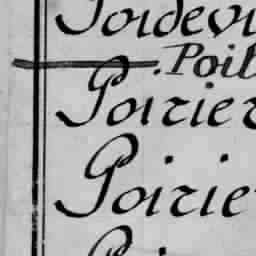 Poidevi
Poil
Poirier
Poirie